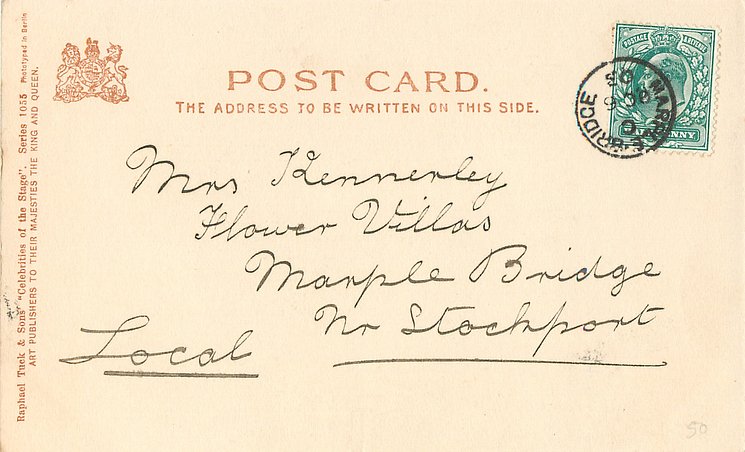 POST CARD.
THE ADDRESS TO BE WRITTEN ON THIS SIDE.
POSTAGE & REVENUE
MARPLE BRIDGE
Mrs Kennerley
Flower Villas
Marple Bridge
Nr Stockport
Local
Raphael Tuck & Sons' "Celebrities of the Stage". Series 1055 Phototyped in Berlin
ART PUBLISHERS TO THEIR MAJESTIES THE KING AND QUEEN.
50